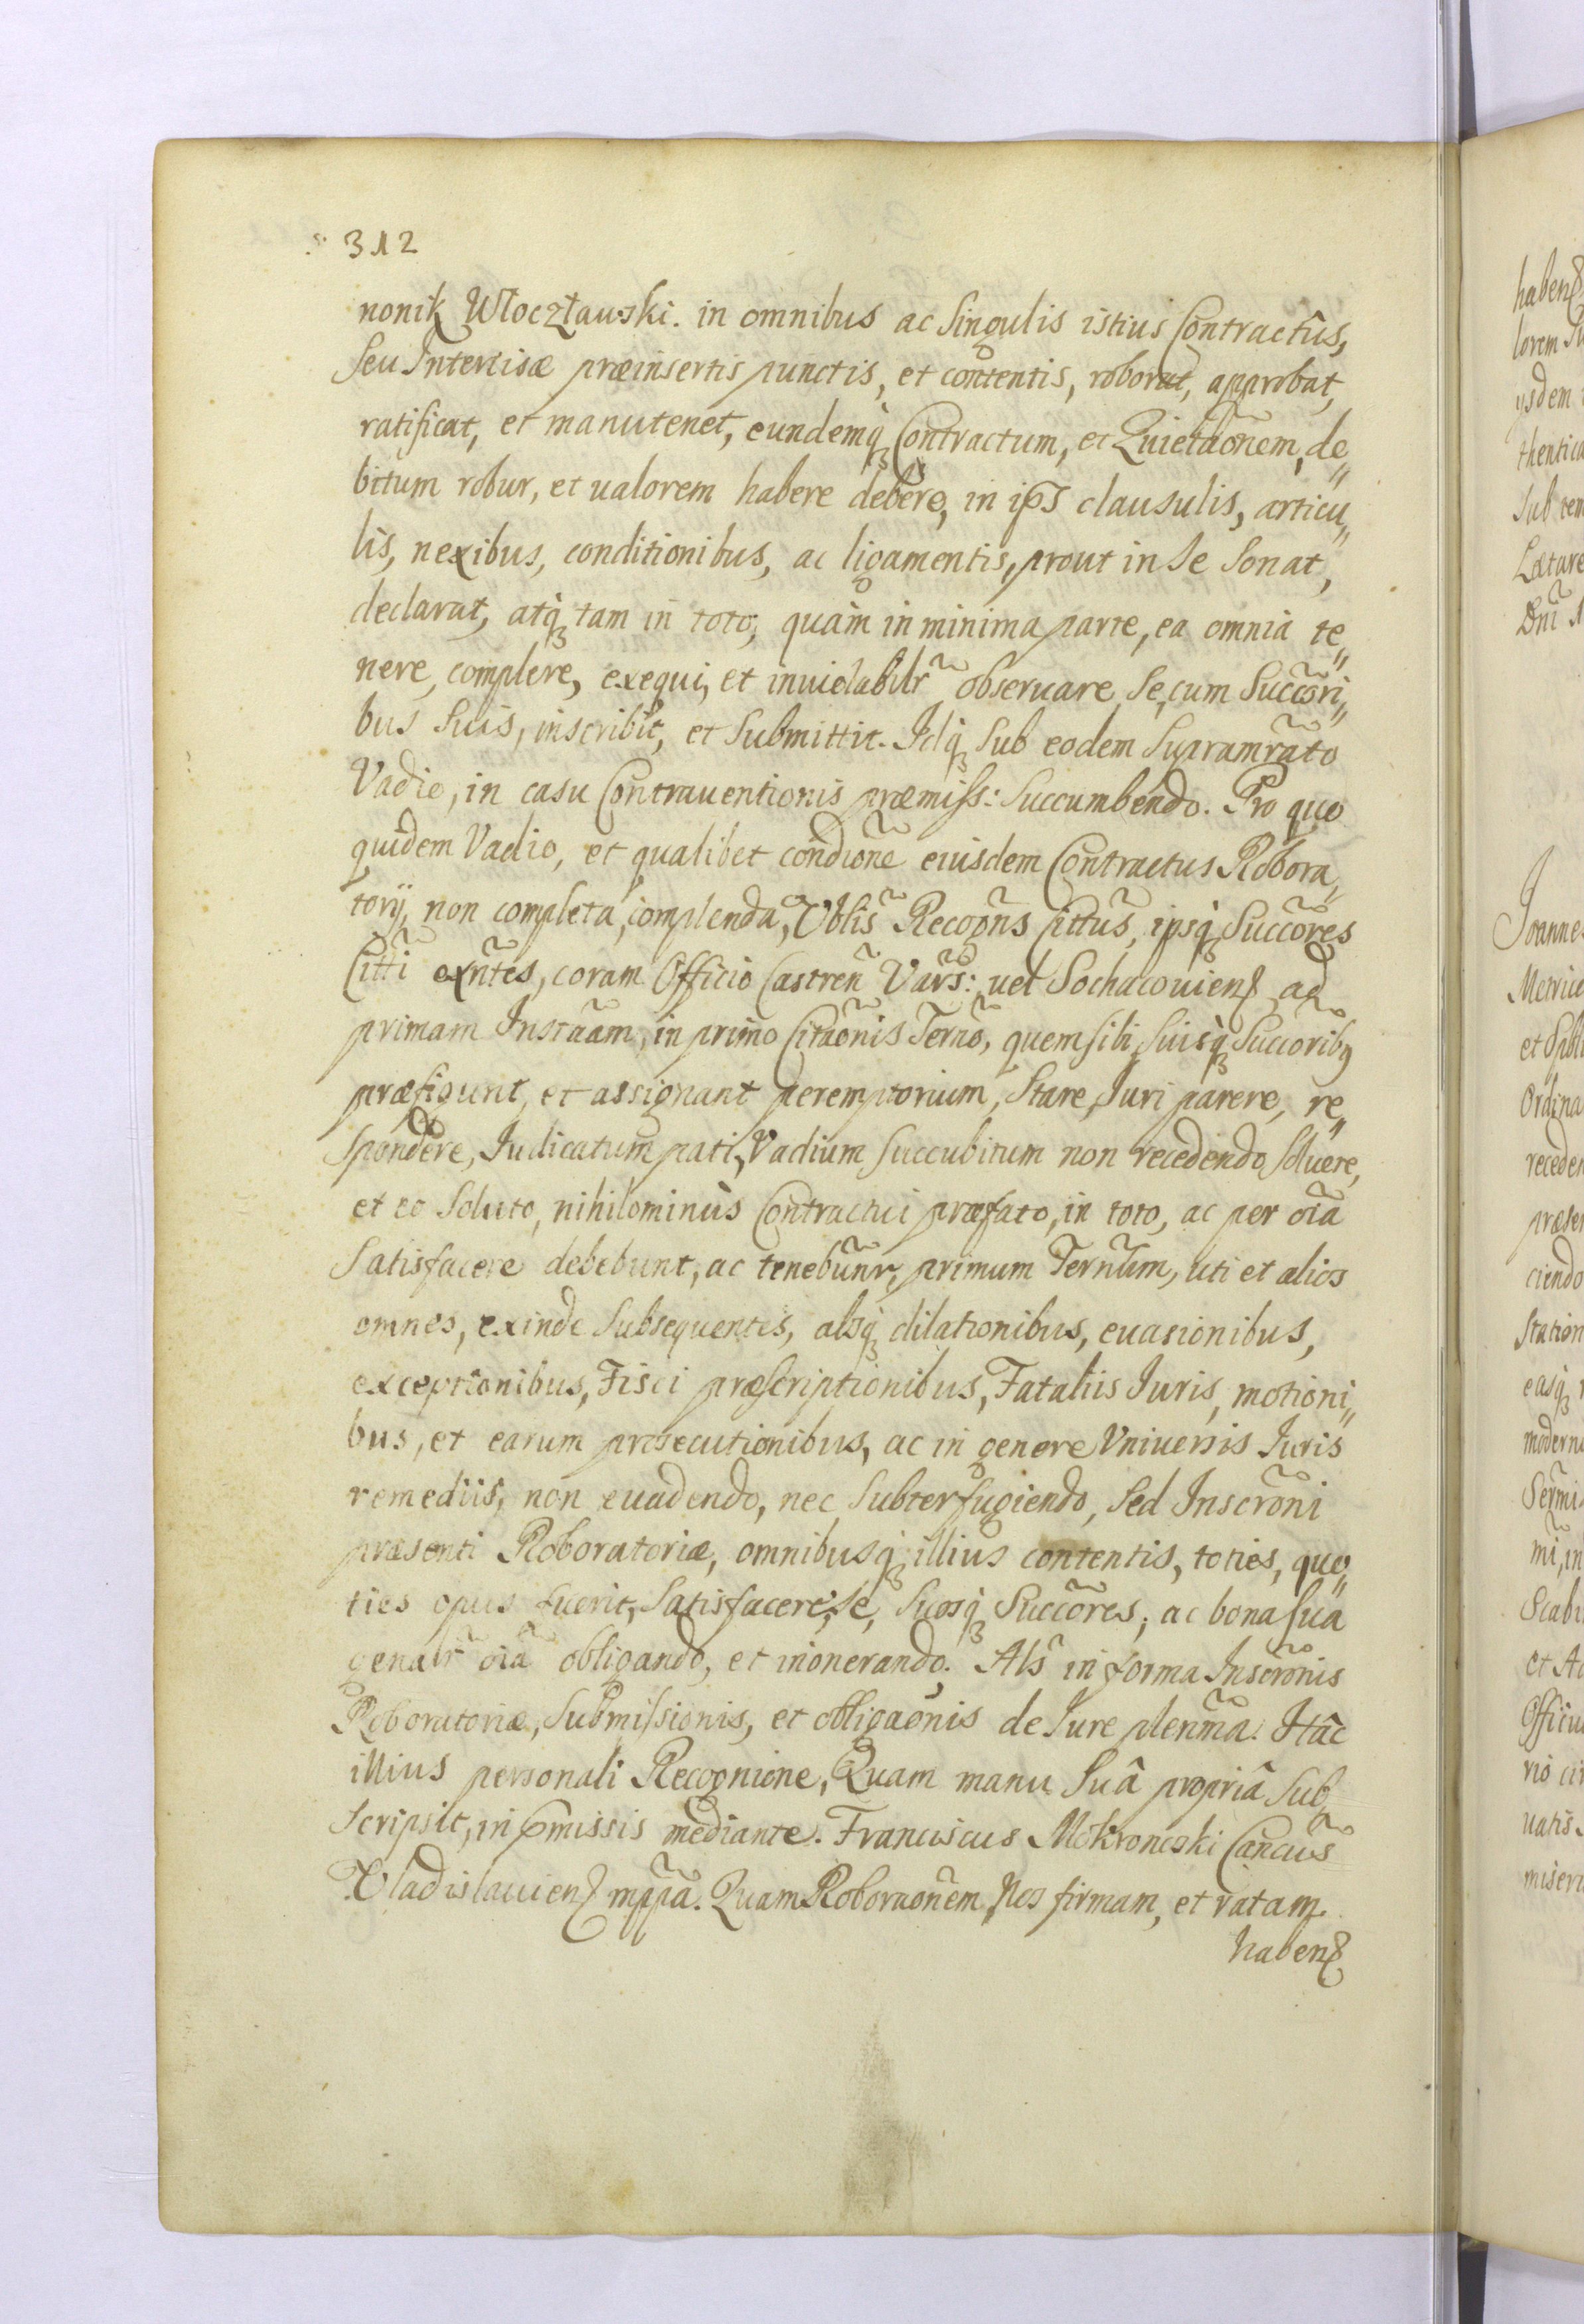 312
nonik Włoczławski. in omnibus ac Singulis istius Contractûs,
Seu Intercisæ præinsertis punctis, et contentis, roborat, approbat,
ratificat, et manutenet, eundemq́ȝ Contractum, et Quieta͠onem, de„
bitum robur, et ualorem habere debere, in ips̃ clausulis, articu„
lis, nexibus, conditionibus, ac ligamentis, prout in Se Sonat,
declarat, atq́ȝ tam in toto, quàm in minima parte, ea omnia te„
nere, complere, exequi, et inuiolabilr̃ obseruare Se, cum Succõri„
bus Suis, inscribit, et Submittit. Idq́ȝ Sub eodem Supramr̃ato
Vadio, in casu Contrauentionis præmiss: Succumbendo. Pro quo
quidem Vadio, et qualibet condĩone eiusdem Contractus Robora„
torij, non completa, complenda, Oblis̃ Recogñs Cittũs, ipsq́ȝ Succõres
Citt̃i exñtes, coram Officio Castreñ Vars̃: uel Sochacouienȝ ad
primam Instãam, in primo Cita͠onis Ter̃no, quem sibi Suisq́ȝ Succõribꝰ
præfigunt, et assignant peremptorium, Stare, Iuri parere, re„
spondere, Iudicatum pati, Vadium Succubitum non recedendo Soluere,
et eo Soluto, nihilominùs Contractui præfato, in toto, ac per oĩa
Satisfacere debebunt, ac tenebunr̃, primum Ter̃num, uti et alios
omnes, exinde Subsequentes, absq́ȝ dilationibus, euasionibus,
exceptionibus, Fisci præscriptionibus, Fataliis Iuris, motioni„
bus, et earum prosecutionibus, ac in genere Vniuersis Iuris
remediis, non euadendo, nec Subterfugiendo, Sed Inscrõni
præsenti Roboratoriæ, omnibusq́ȝ illius contentis, toties, quo„
ties opus fuerit, Satisfacere, Se, Suosq́ȝ Succõres, ac bona Sua
genalr̃ oĩa obligando, et inonerando. Als̃ in forma Inscrõnis
Roboratoriæ, Submissionis, et obliga͠onis de Iure pleñma. Hâc
illius personali Recognĩone, Quam manu Suâ propriâ Sub„
scripsit, in p̃missis mediante. Franciscus Mokronoski Cañcus
Vladislauienȝ mpp̃a. Quam Robora͠onem Nos firmam, et ratam
habenȝ
habenȝ
lorem
ijsdem
thentica
Sub
Lætare
Dñi
Joannes
et
Ordina
receden
præsen
ciendo
Station
easq́ȝ
modern
mi, in
Scabi
et Ac
Officiu
rio
uatis